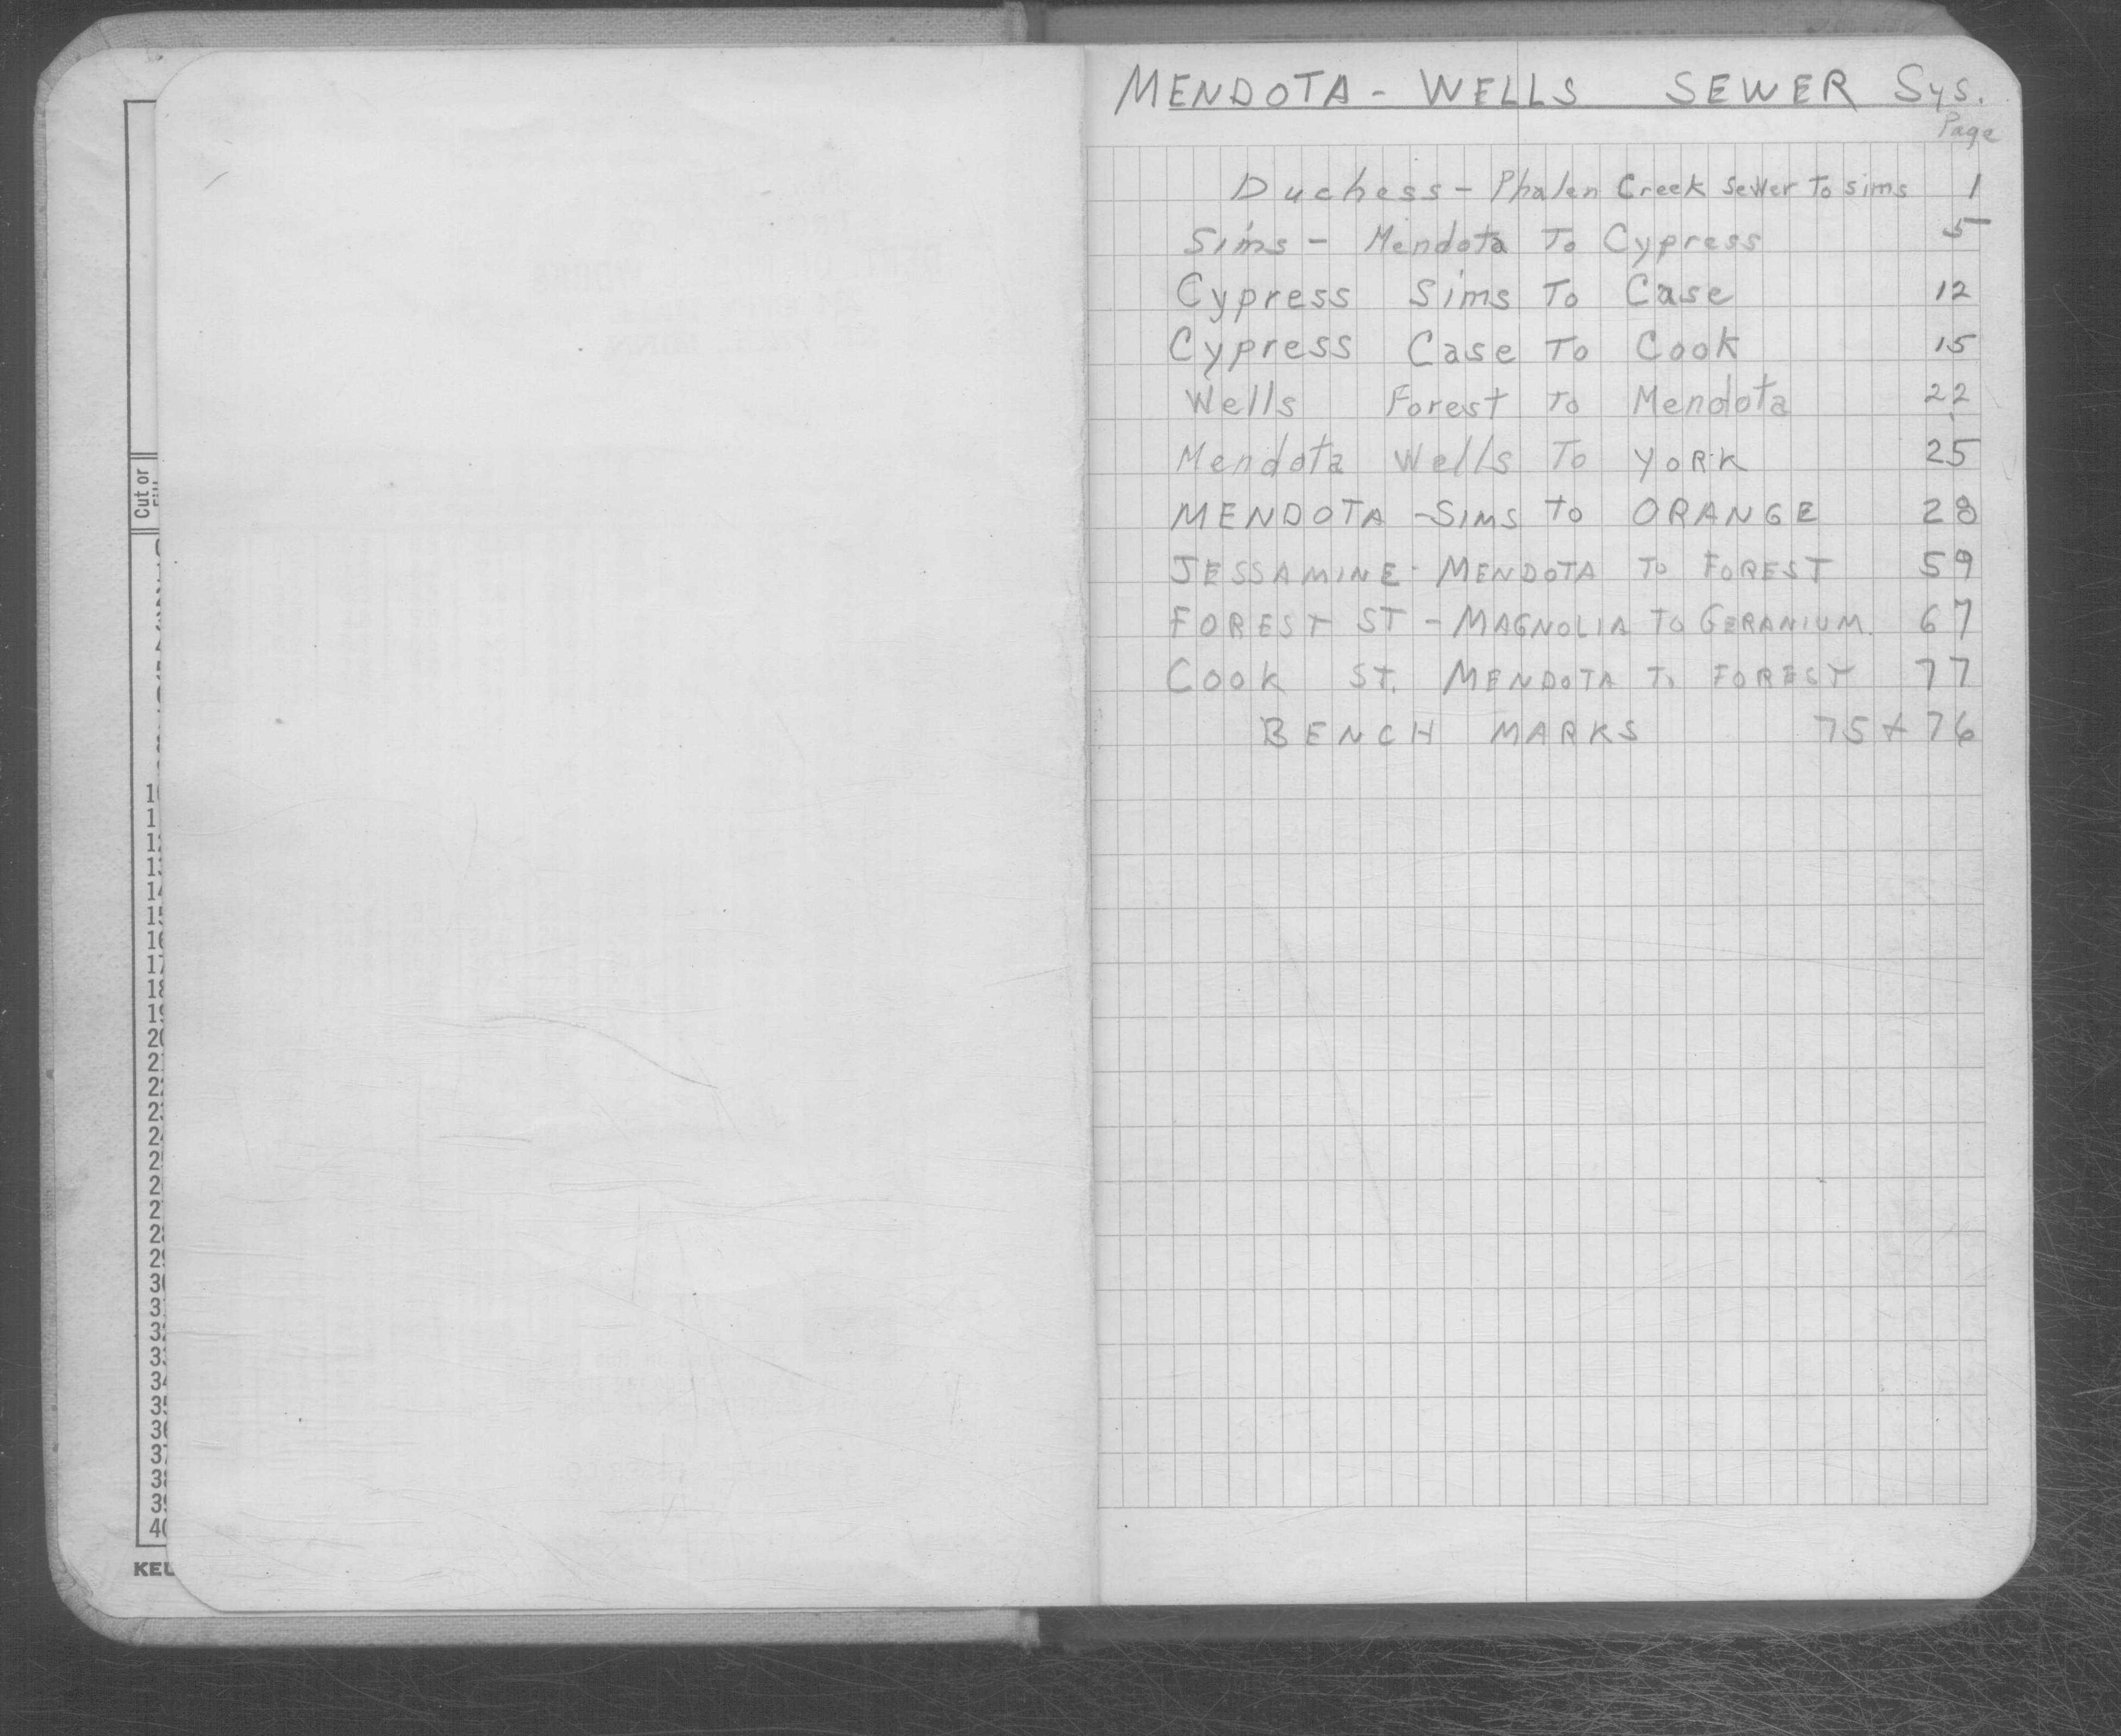 Cut or
10
11
12
13
14
15
16
17
18
19
20
2
22
2
24
2
2
2
28
29
30
3
32
33
34
35
36
37
38
39
40
KEU
MENDOTA - WELLS SEWER Sys.
Page
Duchess - Phalen Creek Sewer To Sims 1
Sims - Mendota To Cypress 5
Cypress Sims To Case 12
Cypress Case To Cook 15
Wells Forest To Mendota 22
Mendota Wells To YORK 25
MENDOTA - SIMS to ORANGE 28
JESSAMINE - MENDOTA TO FOREST 59
FOREST ST - MAGNOLIA TO GERANIUM. 67
COOK ST. MENDOTA TO FOREST 77
BENCH MARKS 75 + 76